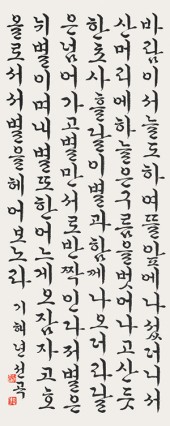 바람이서늘도하여뜰앞에나섰더니서
산머리에하늘은구름을벗어나고산뜻
한초사흘달이별과함께나오더라달
은넘어가고별만서로반짝인다저별은
뉘별이며내별또한어느게오잠자고호
올로서서별을헤어보노라 기해년선곡